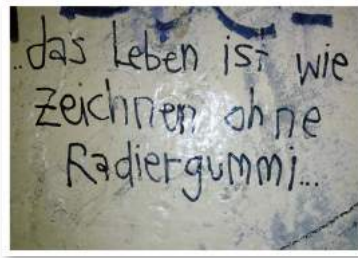 ..das Leben ist wie
zeichnen ohne
Radiergummi...